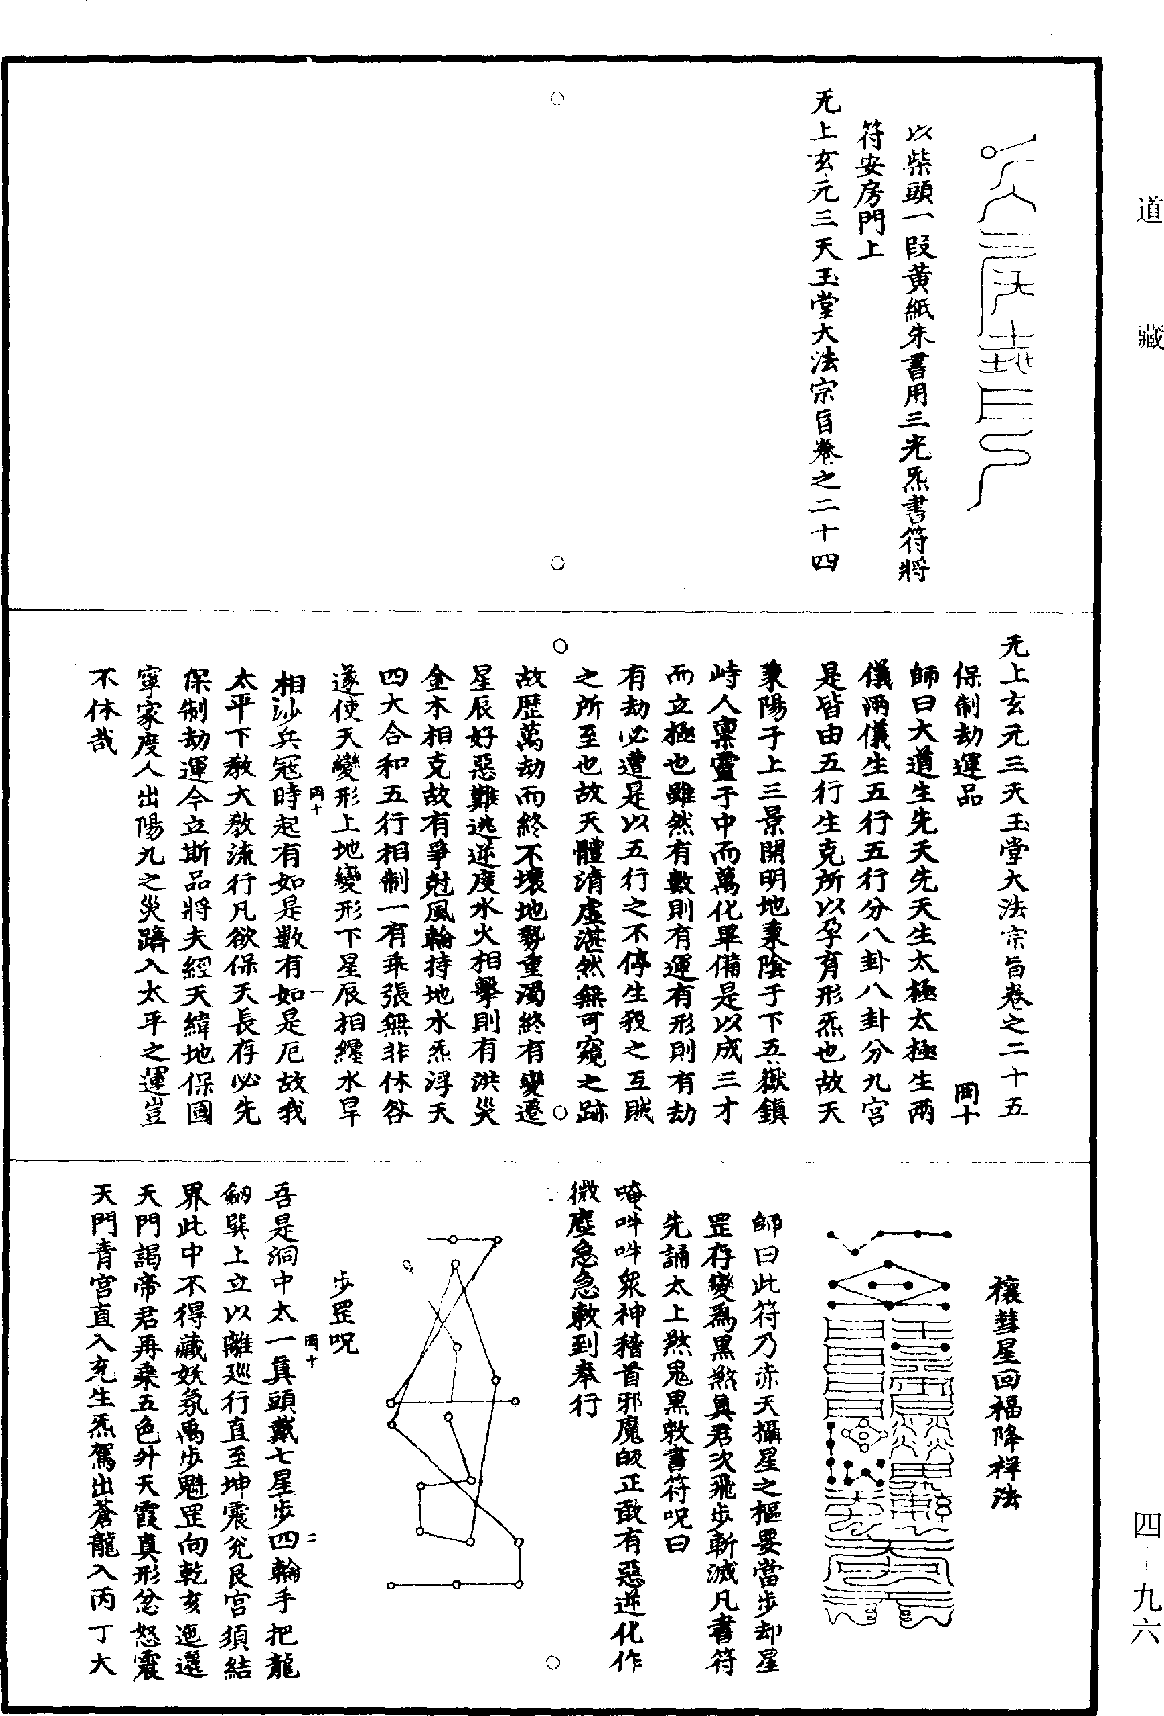 道藏
四-九六
以柴頭一段黃紙朱書用三光炁書符將
符安房門上
无上玄元三天玉堂大法宗旨卷之二十四
无上玄元三天玉堂大法宗旨卷之二十五
保制劫運品 岡十
師曰大道生先天先天生太極太極生兩
儀兩儀生五行五行分八卦八卦分九宮
是皆由五行生克所以孕育形炁也故天
秉陽于上三景開明地秉陰于下五嶽鎮
峙人稟靈于中而萬化畢備是以成三才
而立極也雖然有數則有運有形則有劫
有劫必遭是以五行之不停生殺之互賊
之所至也故天體清虛湛然無可窺之跡
故歷萬劫而終不壞地勢重濁終有變遷
星辰好惡難逃逆度水火相擊則有洪災
金木相克故有爭尅風輪持地水炁浮天
四大合和五行相制一有乖張無非休咎
遂使天變形上地變形下星辰相纏水旱
岡十 一
相沙兵冦時起有如是數有如是厄故我
太平下教大教流行凡欲保天長存必先
保制劫運今立斯品將夫經天緯地保國
寧家度人出陽九之災躋入太平之運豈
不休哉
禳彗星回福降祥法
師曰此符乃赤天攝星之樞要當步却星
罡存變為黑煞真君次飛步斬滅凡書符
先誦太上煞鬼黑敕書符呪曰
唵吽吽衆神稽首邪魔皈正敢有惡逆化作
微塵急急敕到奉行
步罡呪
岡十 二
吾是洞中太一真頭戴七星步四輪手把龍
劒巽上立以離巡行直至坤震兊艮宮須結
界此中不得藏妖氛禹步魁罡向乾亥迤邐
天門謁帝君再乘五色升天霞真形忿怒震
天門青宮直入充生炁駕出蒼龍入丙丁大